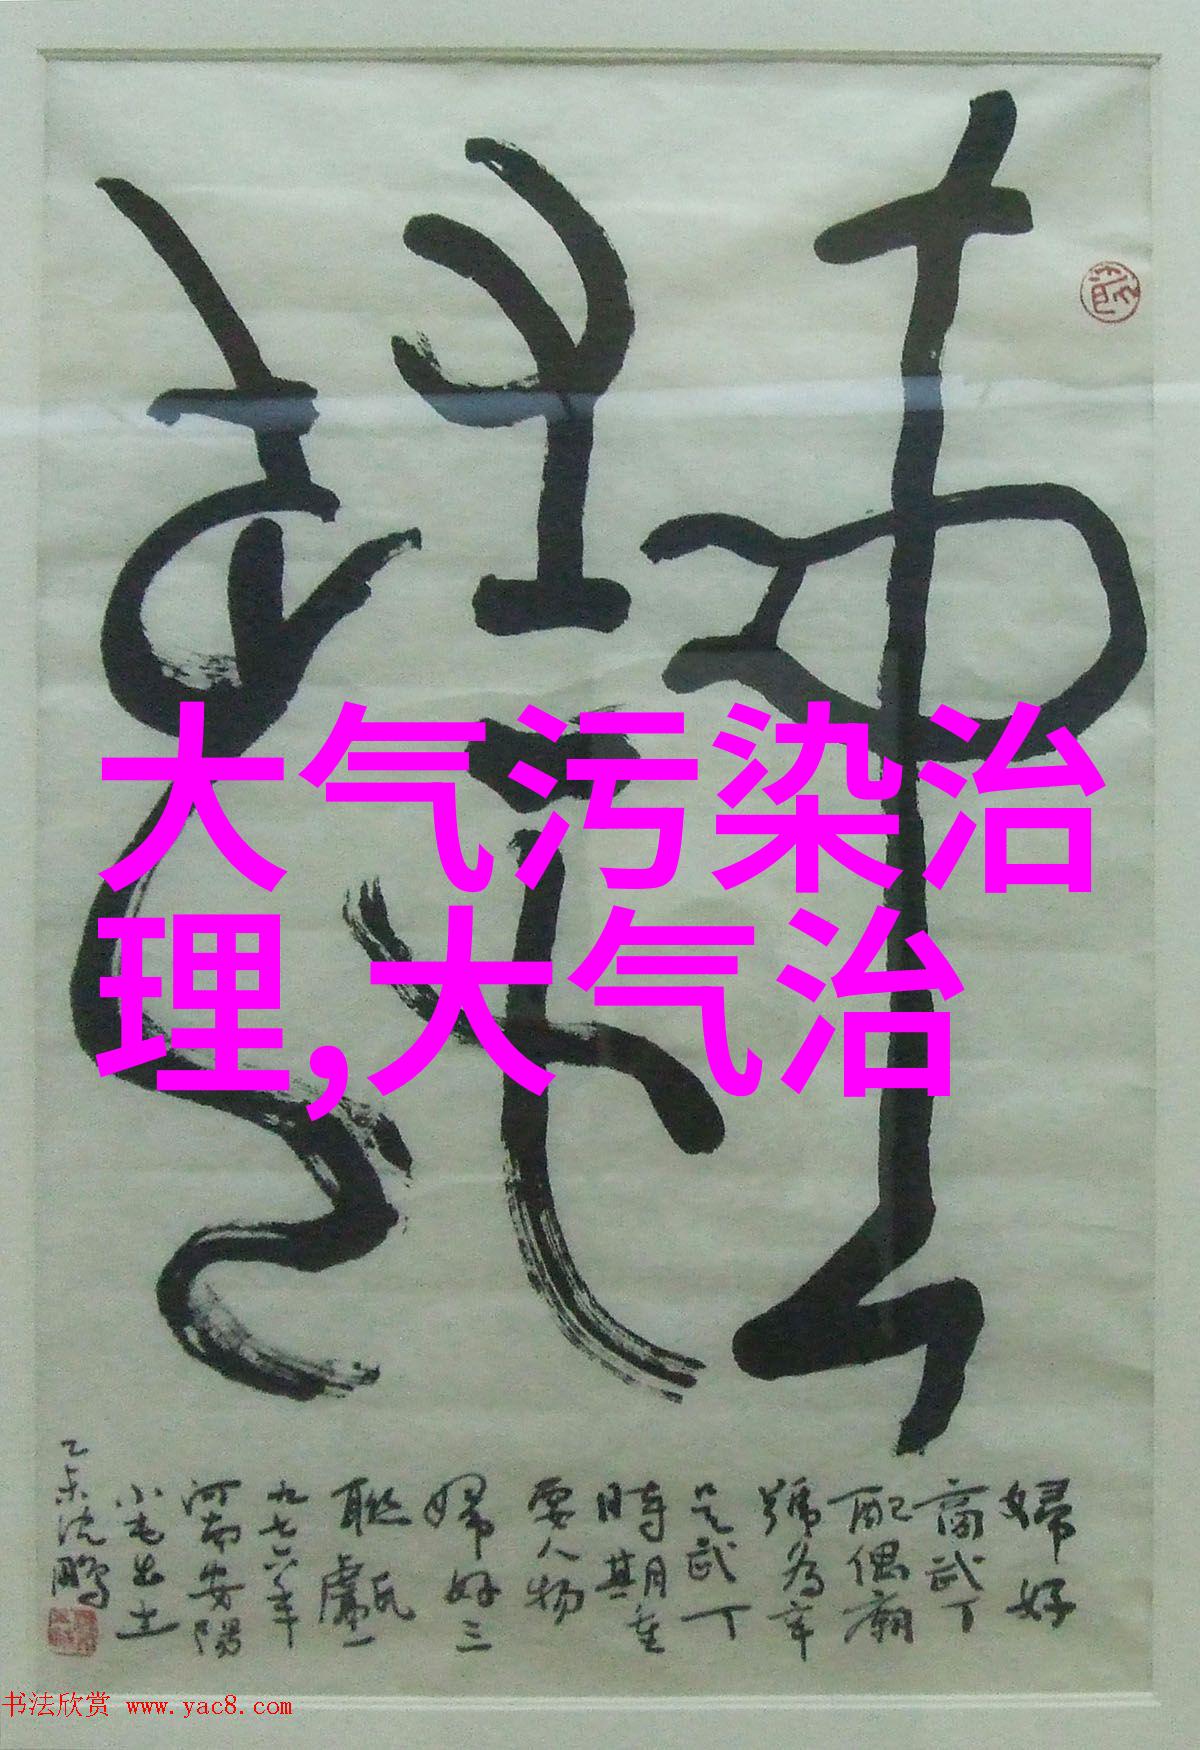 大气污染治
理,大气治
婦好
商武丁
配偶廟
號為辛
是武丁
時期重
要人物
婦好三
聯甗一
九七六年
河南安陽
小屯出土
乙未沈鵬
书法欣赏 www.yac8.com